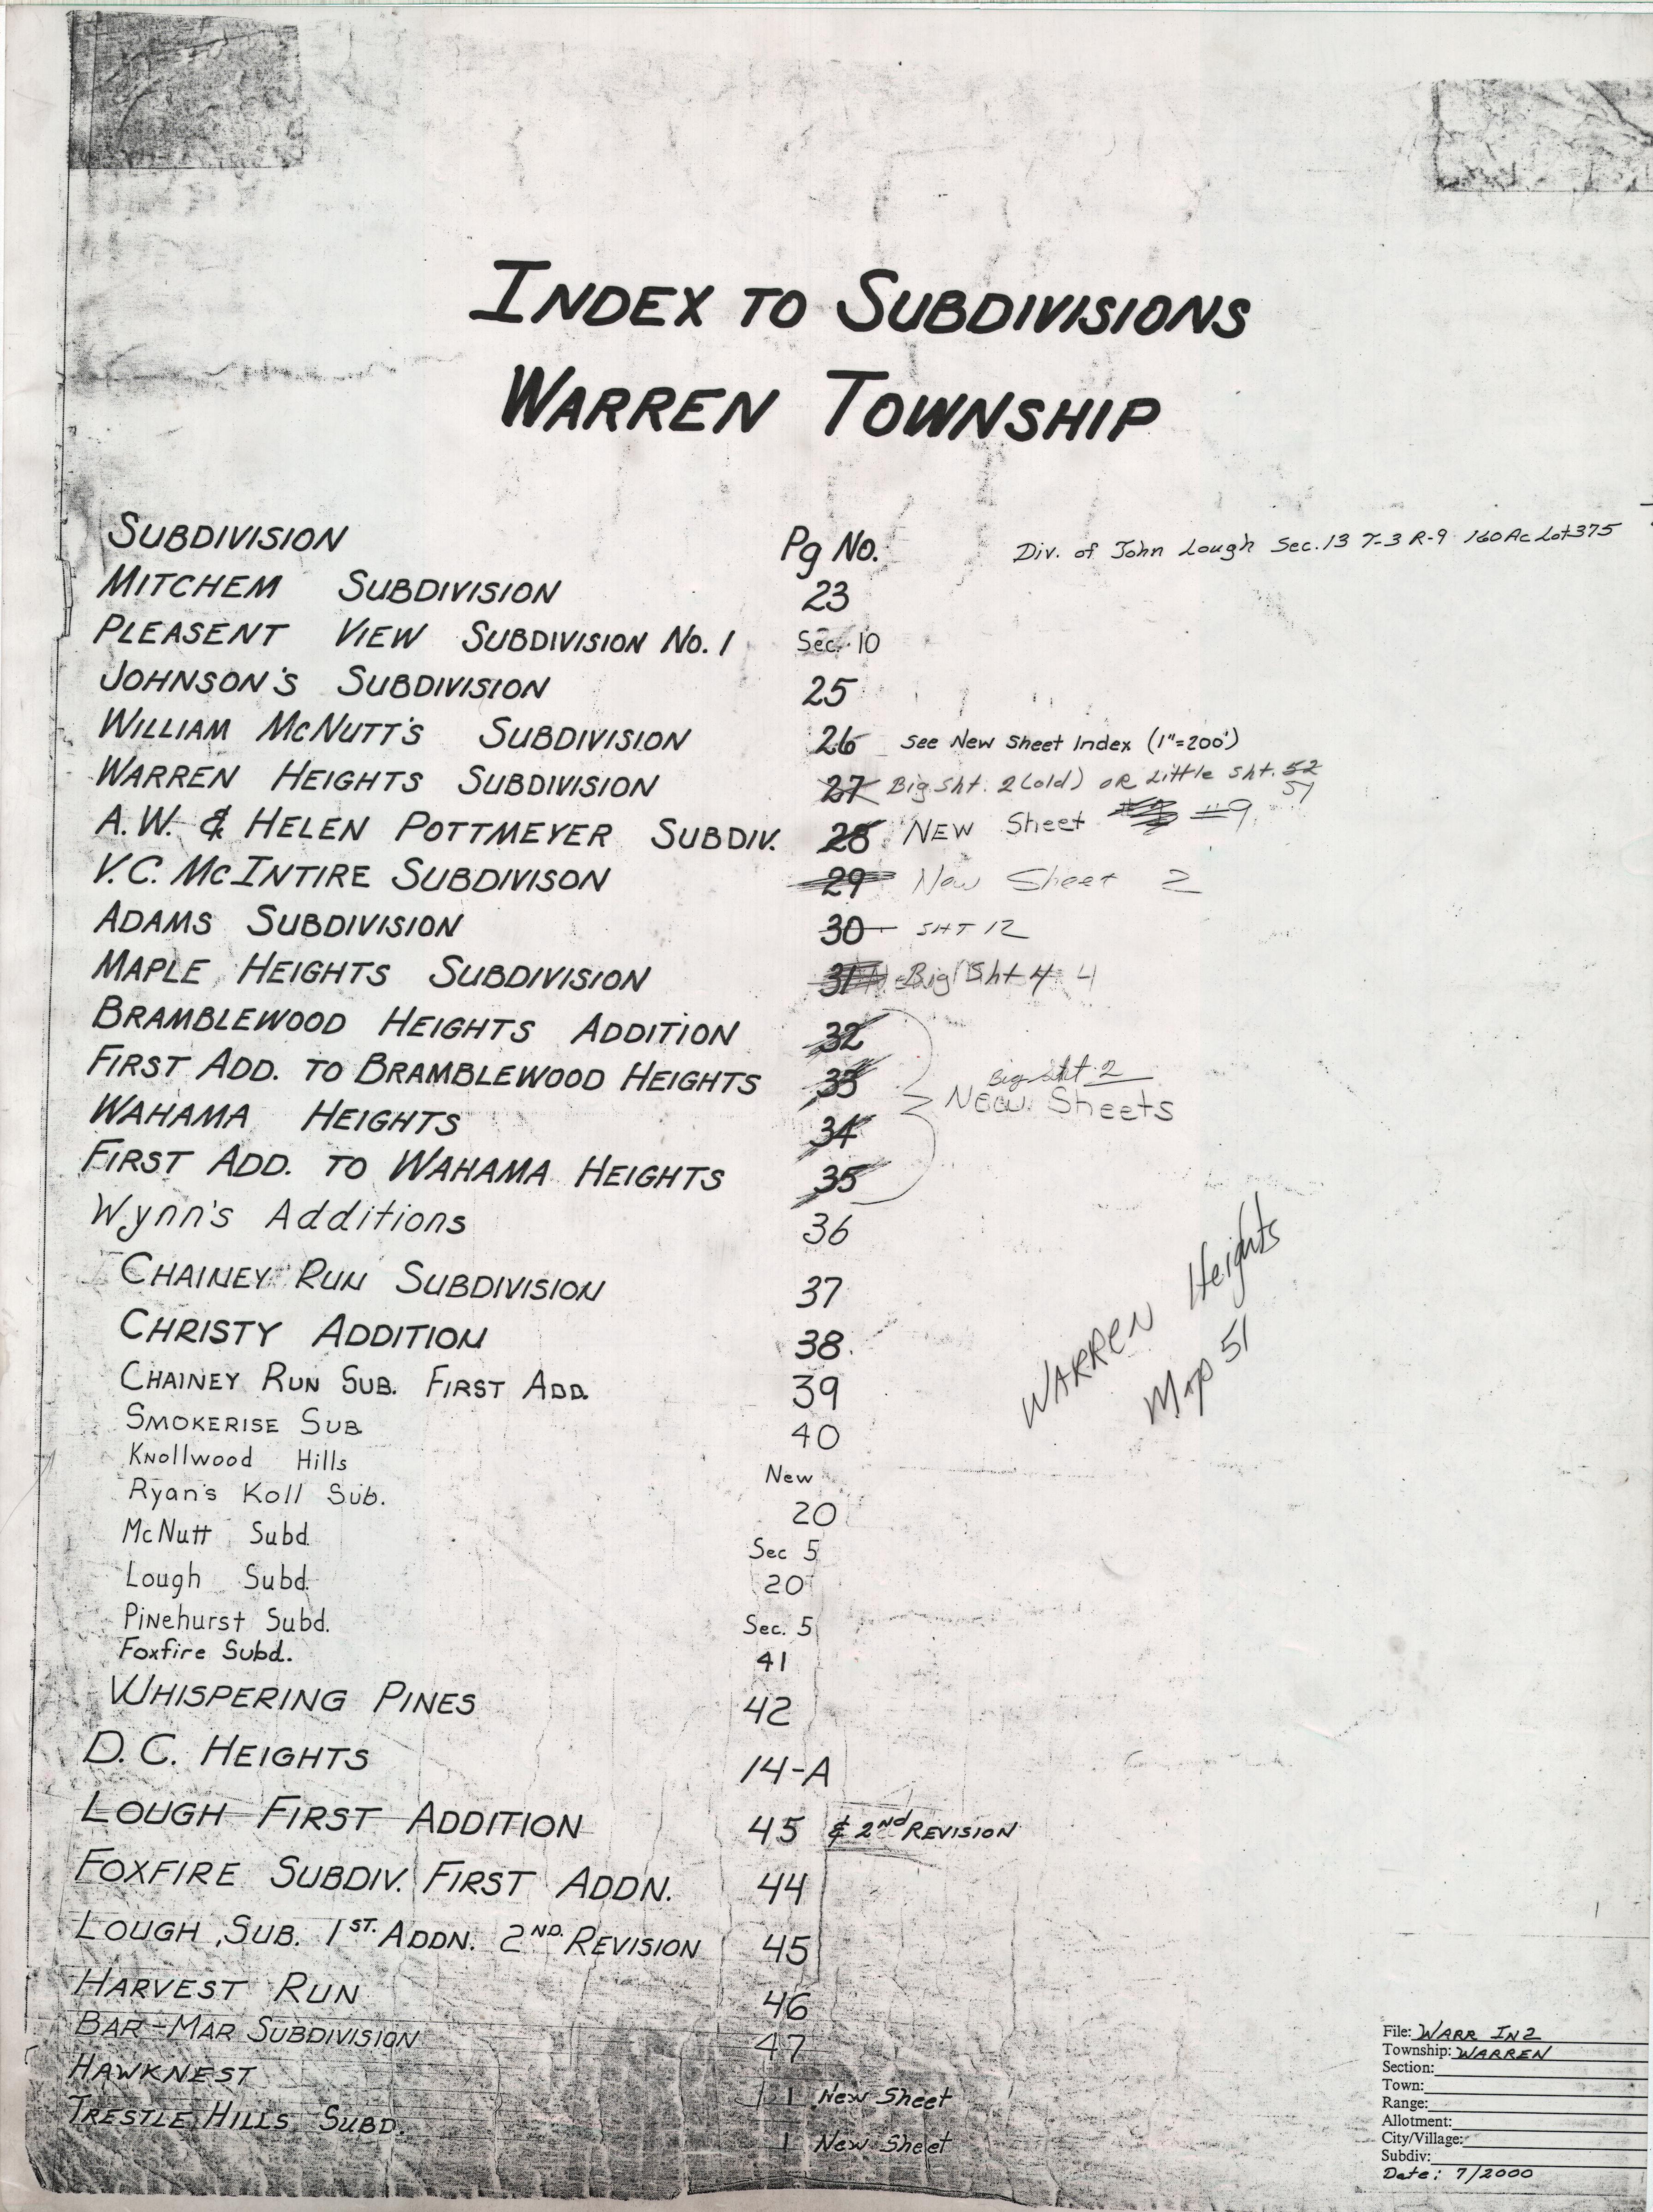 INDEX TO SUBDIVISIONS
WARREN TOWNSHIP
SUBDIVISION Pg No. Div. of John Lough Sec. 13 T-3 R-9 160 Ac Lot 375
MITCHEM SUBDIVISION 23
PLEASENT VIEW SUBDIVISION No. 1 Sec. 10
JOHNSON'S SUBDIVISION 25
WILLIAM McNUTT'S SUBDIVISION 26 See New Sheet Index (1"=200')
WARREN HEIGHTS SUBDIVISION 27 Big Sht. 2 (old) OR Little Sht. 52 51
A.W. & HELEN POTTMEYER SUBDIV. 28 NEW Sheet #9
V.C. McINTIRE SUBDIVISON 29 New Sheet 2
ADAMS SUBDIVISION 30 SHT 12
MAPLE HEIGHTS SUBDIVISION 31 Big Sht 4 4
BRAMBLEWOOD HEIGHTS ADDITION 32
FIRST ADD. TO BRAMBLEWOOD HEIGHTS 33 Big Sht. 2
WAHAMA HEIGHTS 34 New Sheets
FIRST ADD. TO WAHAMA HEIGHTS 35
Wynn's Additions 36
CHAINEY RUN SUBDIVISION 37
CHRISTY ADDITION 38
CHAINEY RUN SUB. FIRST ADD. 39
WARREN Heights
Map 51
SMOKERISE SUB 40
Knollwood Hills New
Ryan's Koll Sub. 20
McNutt Subd. Sec 5
Lough Subd. 20
Pinehurst Subd. Sec. 5
Foxfire Subd. 41
WHISPERING PINES 42
D.C. HEIGHTS 14-A
LOUGH FIRST ADDITION 45 & 2nd REVISION
FOXFIRE SUBDIV. FIRST ADDN. 44
LOUGH SUB. 1ST. ADDN. 2ND. REVISION 45
HARVEST RUN 46
BAR-MAR SUBDIVISION 47
HAWKNEST 1 New Sheet
TRESTLE HILLS SUBD. 1 New Sheet
File: WARR IN2
Township: WARREN
Section:
Town:
Range:
Allotment:
City/Village:
Subdiv:
Date: 7/2000